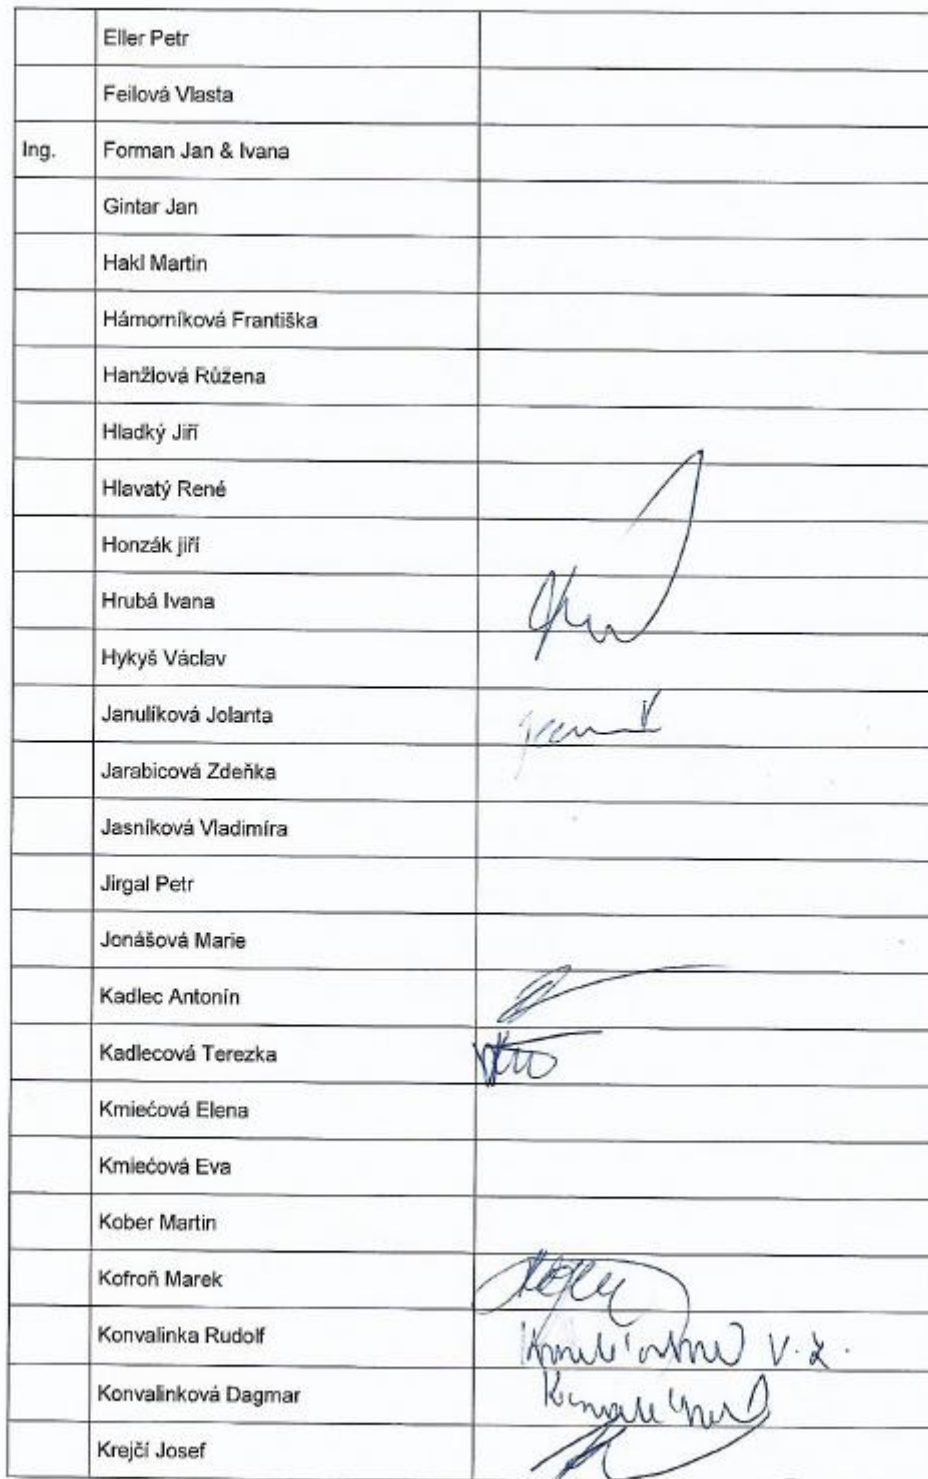 Eller Petr
Feilová Vlasta
Ing. Forman Jan & Ivana
Gintar Jan
Hakl Martin
Hámorníková Františka
Hanžlová Růžena
Hladký Jiří
Hlavatý René
Honzák jiří
Hrubá Ivana
Hykyš Václav
Janulíková Jolanta
Jarabicová Zdeňka
Jasníková Vladimíra
Jirgal Petr
Jonášová Marie
Kadlec Antonín
Kadlecová Terezka
Kmiećová Elena
Kmiećová Eva
Kober Martin
Kofroň Marek
Konvalinka Rudolf
Konvalinková Dagmar
Krejčí Josef